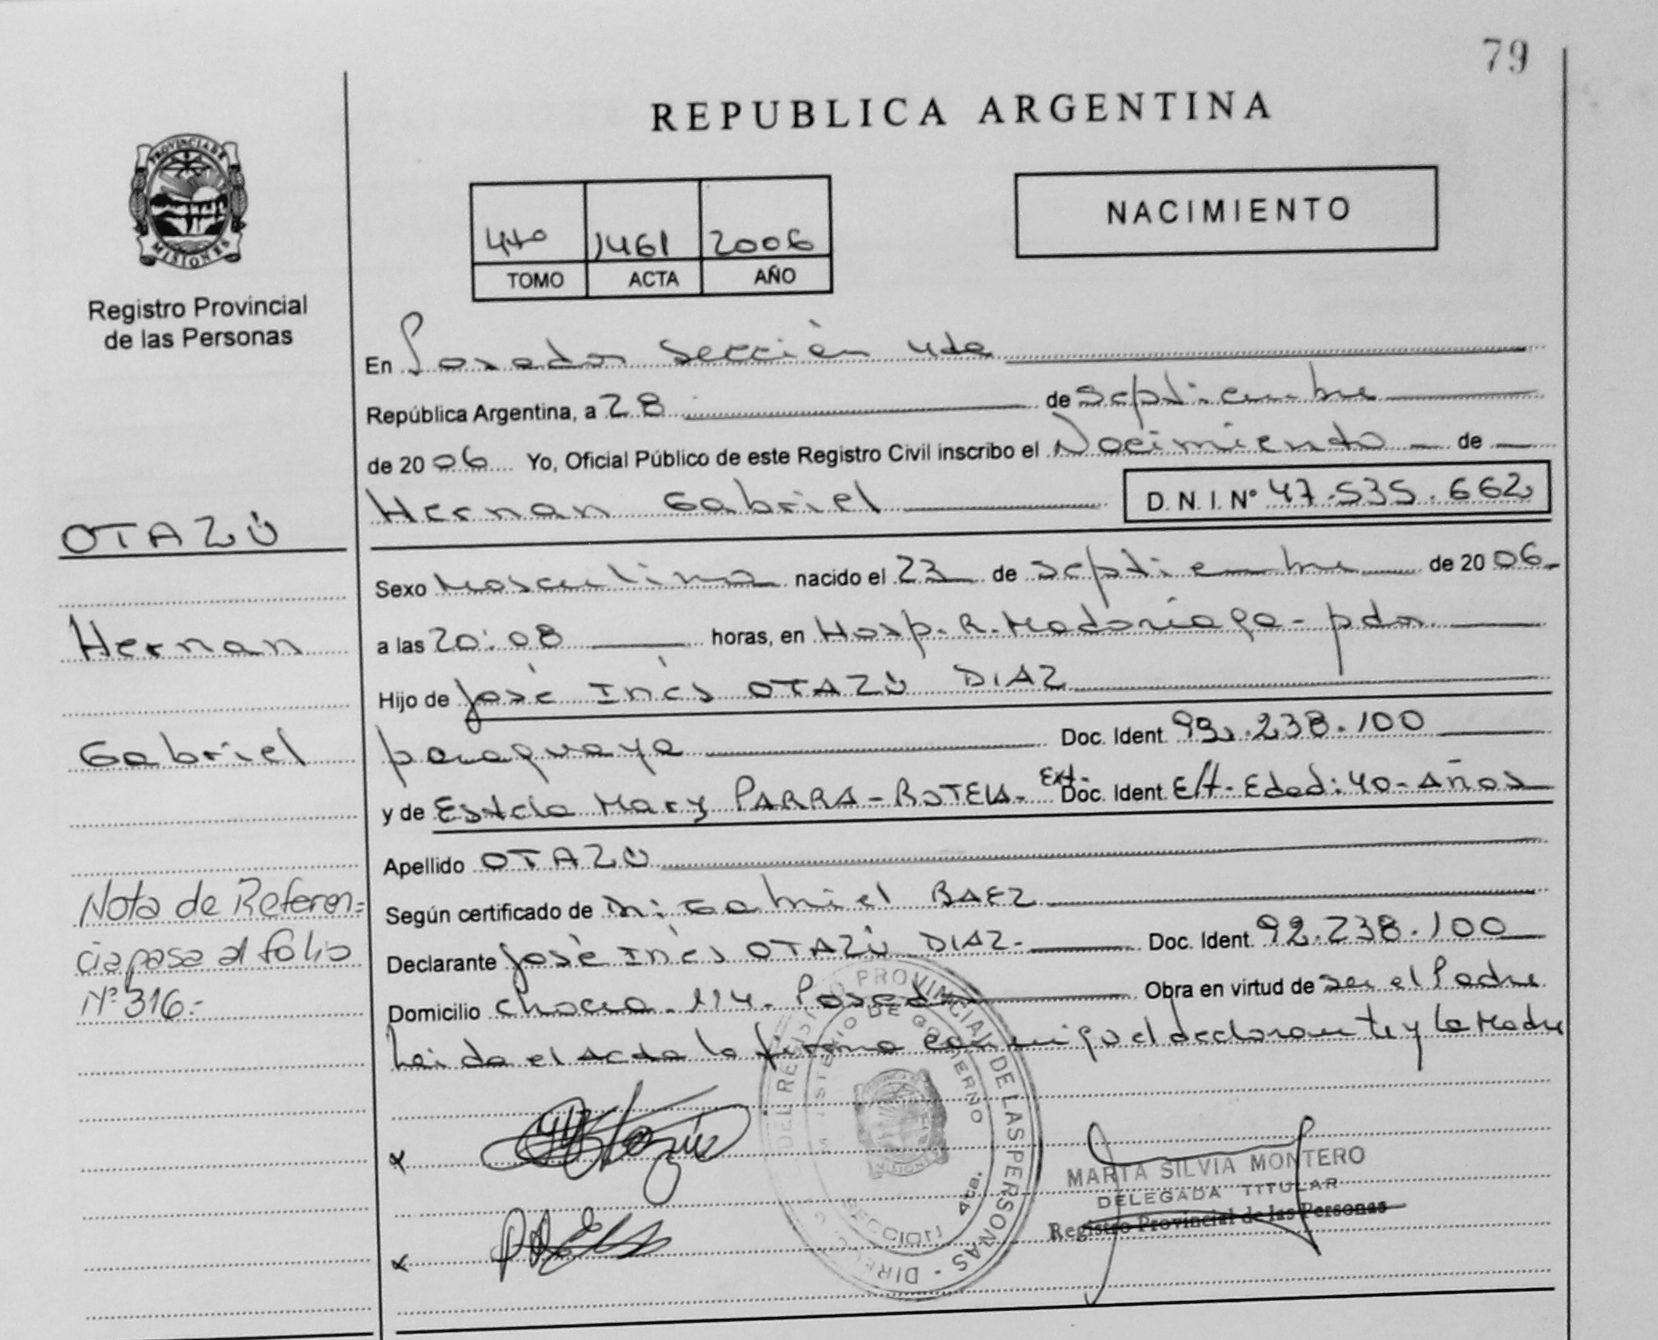 79
REPUBLICA ARGENTINA
PROVINCIA DE
MISIONES
Registro Provincial
de las Personas
4to 1461 2006
TOMO ACTA AÑO
NACIMIENTO
En Posadas Sección 4ta
República Argentina, a 28 de Septiembre
de 2006 Yo, Oficial Público de este Registro Civil inscribo el Nacimiento de
Hernan Gabriel D. N. I. N° 47.535.662
OTAZÚ
Sexo Masculino nacido el 23 de Septiembre de 2006
Hernan
a las 20:08 horas, en Hosp. R. Madariaga - pdas
Hijo de José Inés OTAZÚ DIAZ
Gabriel
paraguaya Doc. Ident. 92.238.100
y de Estela Mary PARRA - ROTELA - Ext. Doc. Ident. E/T - Edad: 40 - Años
Apellido OTAZÚ
Nota de Referen=
cia pasa al folio
N° 316.-
Según certificado de Dr. Gabriel BAEZ
Declarante José Inés OTAZÚ DIAZ.- Doc. Ident. 92.238.100
Domicilio Chacra 114 - Posadas Obra en virtud de ser el Padre
Leida el Acta la firma conmigo el declarante y la Madre
DEL REGISTRO PROVINCIAL DE LAS PERSONAS - DIREC
MINISTERIO DE GOBIERNO
MISIONES
SECCION 4ta.
MARTA SILVIA MONTERO
DELEGADA TITULAR
Registro Provincial de las Personas